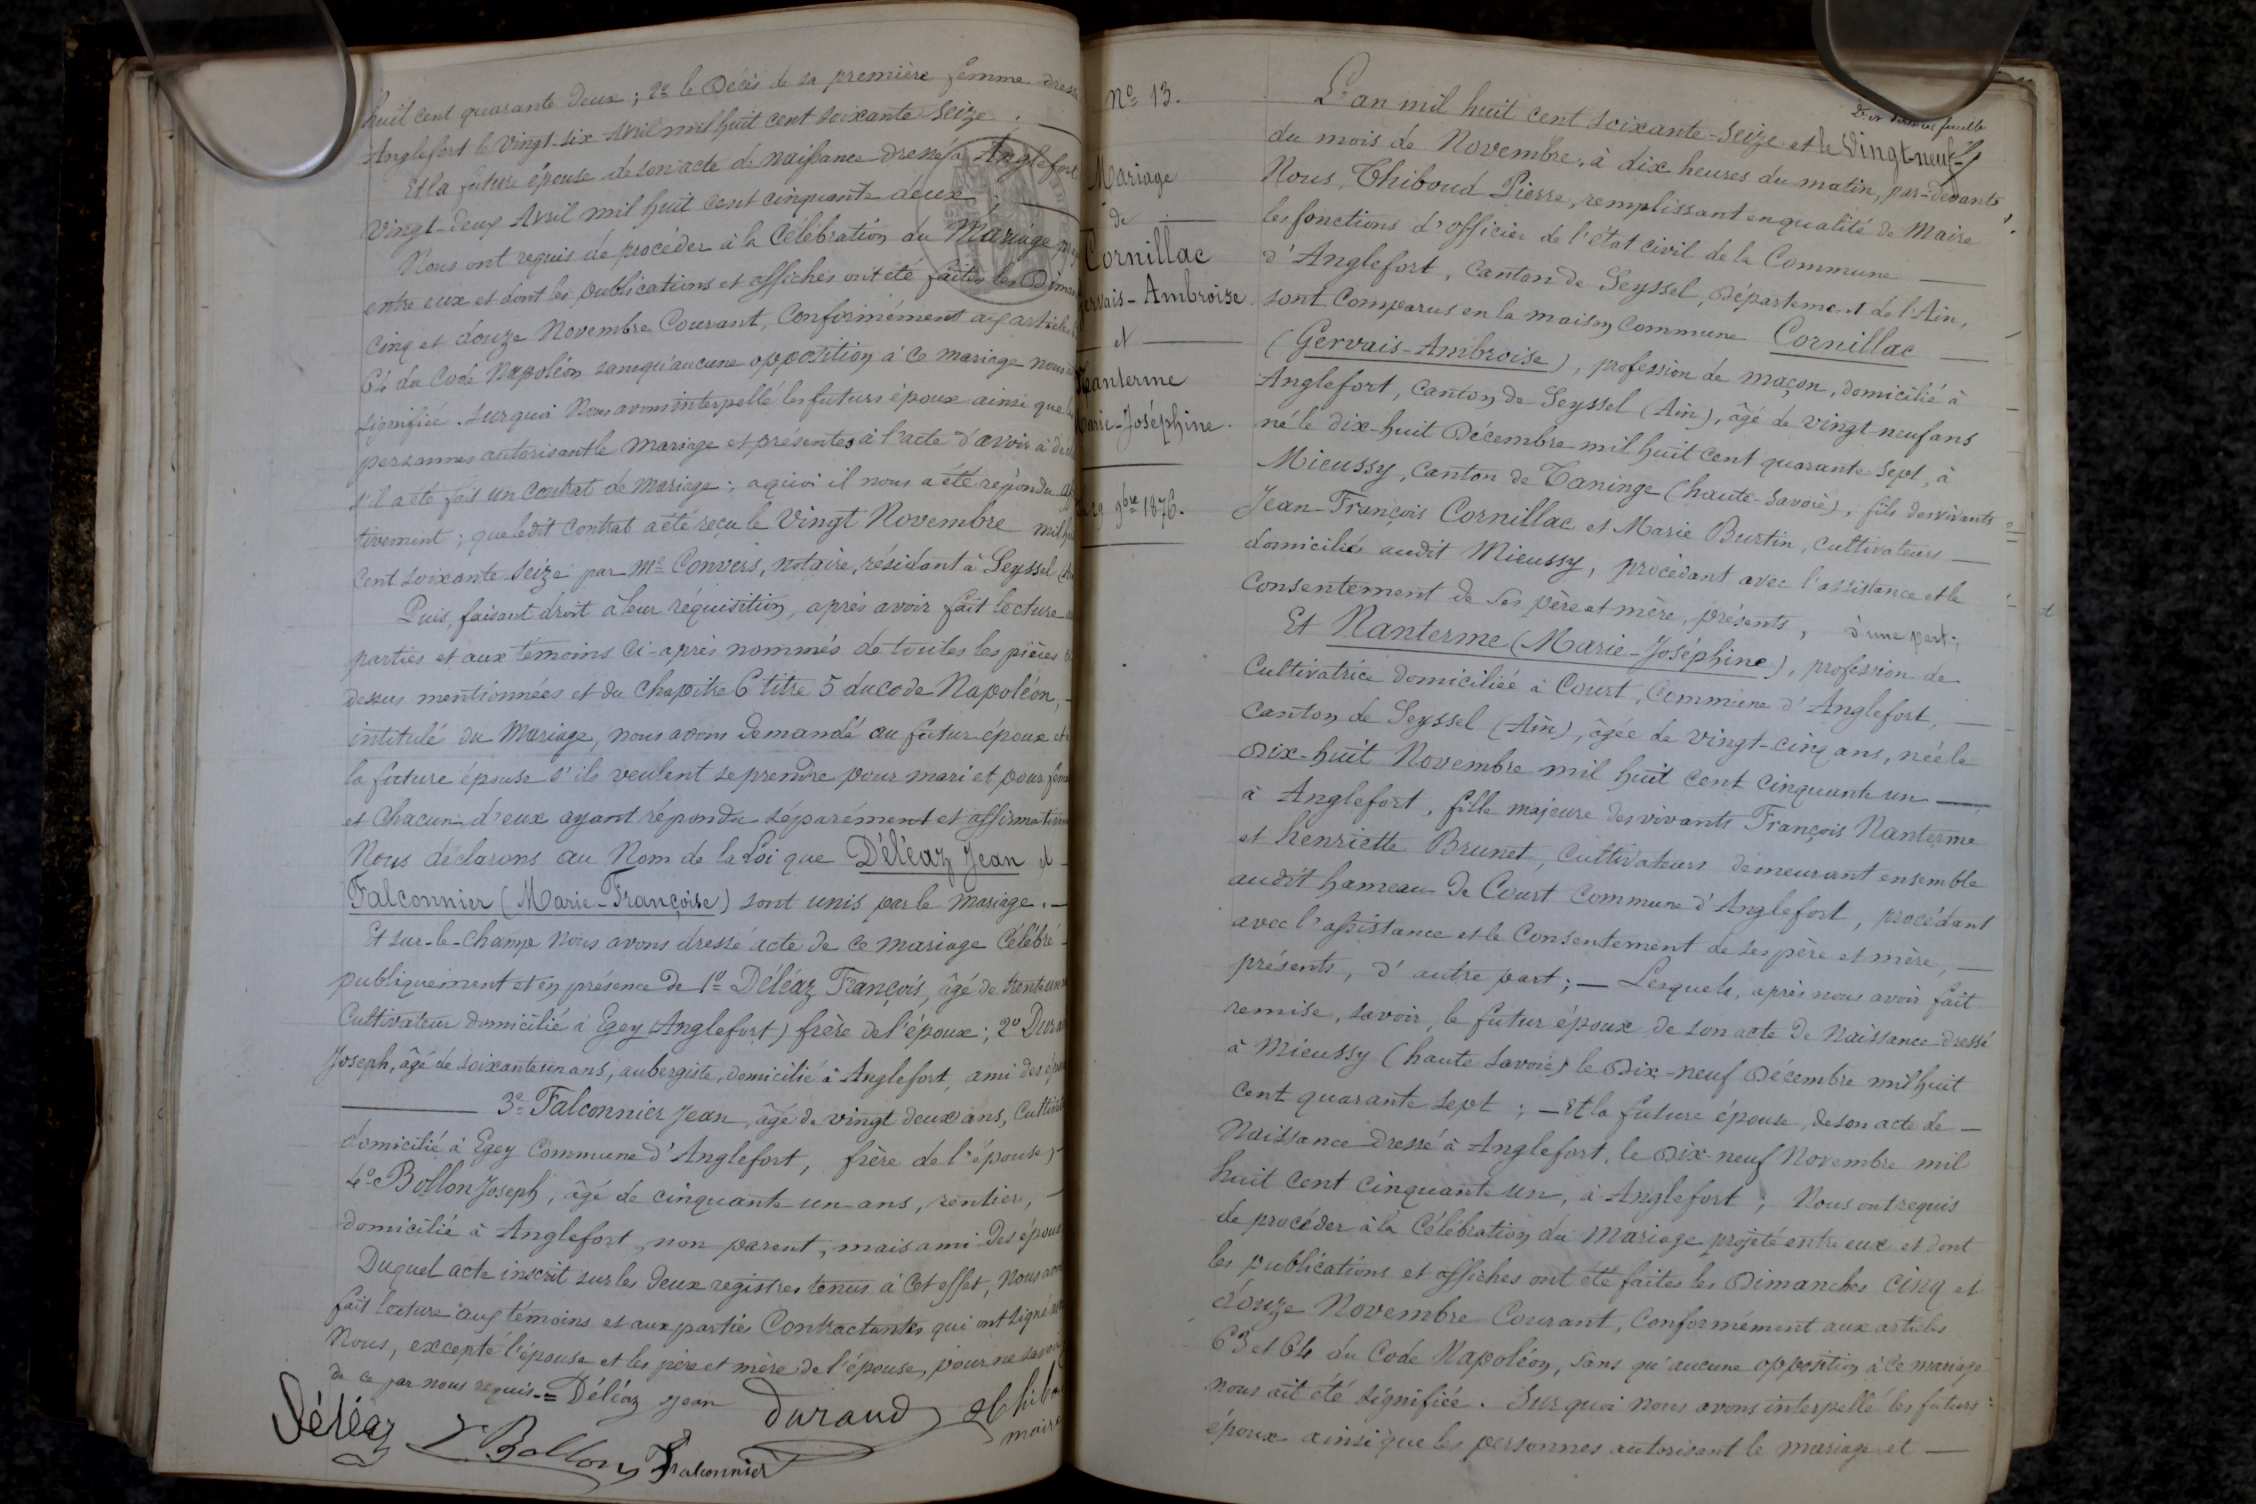 huit cent quarante deux ; 2º le Décès de sa première femme dressé
Anglefort le vingt-six Avril mil huit cent soixante seize.
Et la future épouse de son acte de naissance dressé à Anglefort
vingt-deux Avril mil huit cent cinquante deux.
Nous ont requis de procéder à la Célébration du Mariage
entre eux et dont les publications et affiches ont été faites les Diman
cinq et douze Novembre Courant, Conformément aux articles
64 du Code Napoléon sans qu'aucune opposition à ce mariage nous
signifiée. Sur quoi Nous avons interpellé les futurs époux ainsi que
personnes autorisant le mariage et présentes à l'acte d'avoir à
s'il a été fait un Contrat de mariage ; à quoi il nous a été répondu
tivement ; que ledit Contrat a été reçu le Vingt Novembre mil
Cent soixante seize par Me Convers, notaire, résidant à Seyssel
Puis, faisant droit à leur réquisition, après avoir fait lecture
parties et aux témoins Ci-après nommés de toutes les pièces
dessus mentionnées et du Chapitre 6 titre 5 du code Napoléon,
intitulé du Mariage, nous avons demandé au futur époux et
la future épouse s'ils veulent se prendre pour mari et pour
et Chacun d'eux ayant répondu séparément et affirmativem
Nous déclarons au Nom de la Loi que Déléaz Jean et
Falconnier (Marie-Françoise) sont unis par le mariage.
Et sur-le-champ Nous avons dressé acte de ce mariage Célébré
publiquement et en présence de 1º Déléaz François, âgé de trente un
Cultivateur domicilié à Egey (Anglefort) frère de l'époux ; 2º Duran
Joseph, âgé de soixante un ans, aubergiste, domicilié à Anglefort ami des
3º Falconnier Jean, âgé de vingt deux ans, Cultivat
domicilié à Egey Commune d'Anglefort, frère de l'épouse,
4º Bollon Joseph, âgé de cinquante un ans, rentier,
domicilié à Anglefort, non parent, mais ami Des époux
Duquel acte inscrit sur les deux registres tenus à Cet effet, Nous avons
fait lecture aux témoins et aux parties Contractantes qui ont signé
Nous, excepté l'épouse et les père et mère de l'épouse, pour ne savoir
de ce par nous requis. = Déléaz Jean
Déléaz Bollon Falconnier Durand Thibou
maire
Nº 13.
Mariage
de
Cornillac
Gervais-Ambroise
et
Nanterme
Marie-Joséphine.
9bre 1876.
L'an mil huit cent soixante-Seize et le Vingt-neuf
du mois de Novembre, à dix heures du matin, par-devant
Nous, Thiboud Pierre, remplissant en qualité de Maire
les fonctions d'officier de l'état civil de la Commune
d'Anglefort, Canton de Seyssel, Département de l'Ain,
sont Comparus en la maison Commune Cornillac
(Gervais-Ambroise), profession de maçon, domicilié à
Anglefort, Canton de Seyssel (Ain), âgé de vingt-neuf ans
né le dix-huit Décembre mil huit cent quarante sept, à
Mieussy, Canton de Taninge (haute-Savoie), fils des vivants
Jean-François Cornillac et Marie Burtin, Cultivateurs
domiciliés audit Mieussy, procédant avec l'assistance et le
Consentement de ses père et mère, présents, d'une part ;
Et Nanterme (Marie-Joséphine), profession de
Cultivatrice domiciliée à Court, Commune d'Anglefort,
Canton de Seyssel (Ain), âgée de vingt-cinq ans, née le
Dix-huit Novembre mil huit cent cinquante un
à Anglefort, fille majeure des vivants François Nanterme
et henriette Brunet, Cultivateurs demeurant ensemble
audit hameau de Court Commune d'Anglefort, procédant
avec l'assistance et le Consentement de ses père et mère,
présents, d'autre part ; — Lesquels, après nous avoir fait
remise, savoir, le futur époux de son acte de Naissance dressé
à Mieussy (haute Savoie) le Dix-neuf Décembre mil huit
cent quarante sept ; — Et la future épouse, de son acte de
Naissance dressé à Anglefort, le Dix-neuf Novembre mil
huit cent cinquante un, à Anglefort ; Nous ont requis
de procéder à la Célébration du Mariage projeté entre eux et dont
les publications et affiches ont été faites les Dimanches cinq et
douze Novembre Courant, Conformément aux articles
63 et 64 du Code Napoléon, sans qu'aucune opposition à ce mariage
nous ait été signifiée. Sur quoi nous avons interpellé les futurs
époux ainsi que les personnes autorisant le mariage et